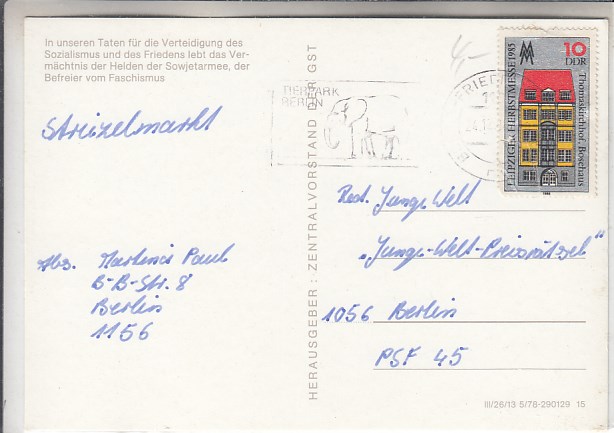 In unseren Taten für die Verteidigung des
Sozialismus und des Friedens lebt das Ver-
mächtnis der Helden der Sowjetarmee, der
Befreier vom Faschismus
Striezelmarkt
Abs. Martina Paul
B-B-Str. 8
Berlin
1156
HERAUSGEBER: ZENTRALVORSTAND DER GST
TIERPARK
BERLIN
LEIPZIGER HERBSTMESSE 1985
10
DDR
Thomaskirchhof · Bosehaus
1985
Red. Junge Welt
„Junge-Welt-Preisrätsel"
1056 Berlin
PSF 45
III/26/13 5/78-290129 15